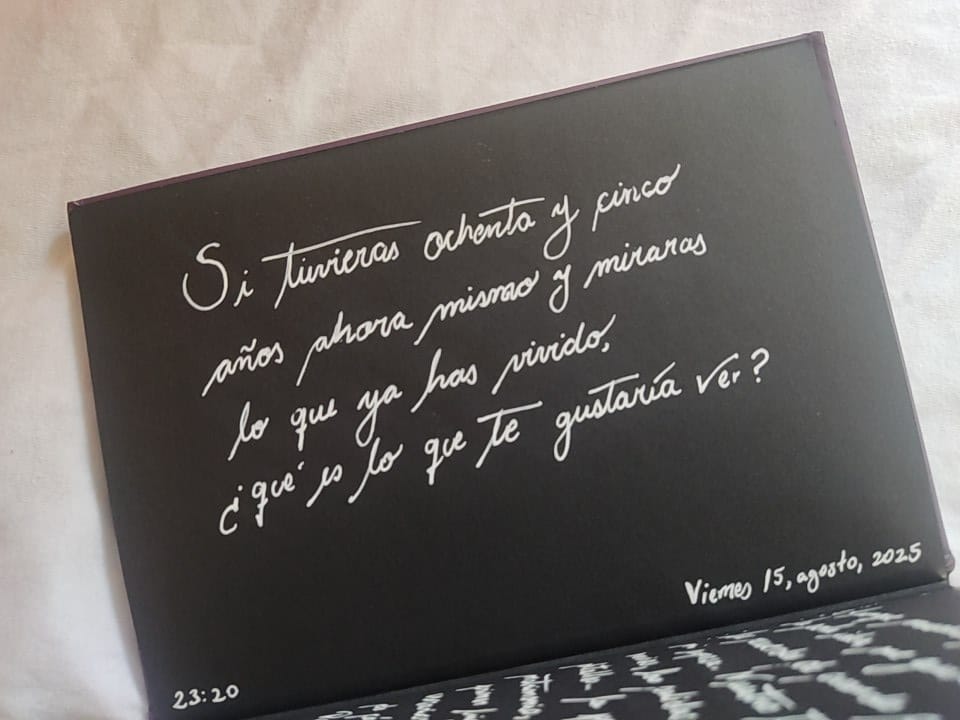 Si tuvieras ochenta y cinco
años ahora mismo y miraras
lo que ya has vivido,
¿qué es lo que te gustaría ver?
Viernes 15, agosto, 2025
23:20